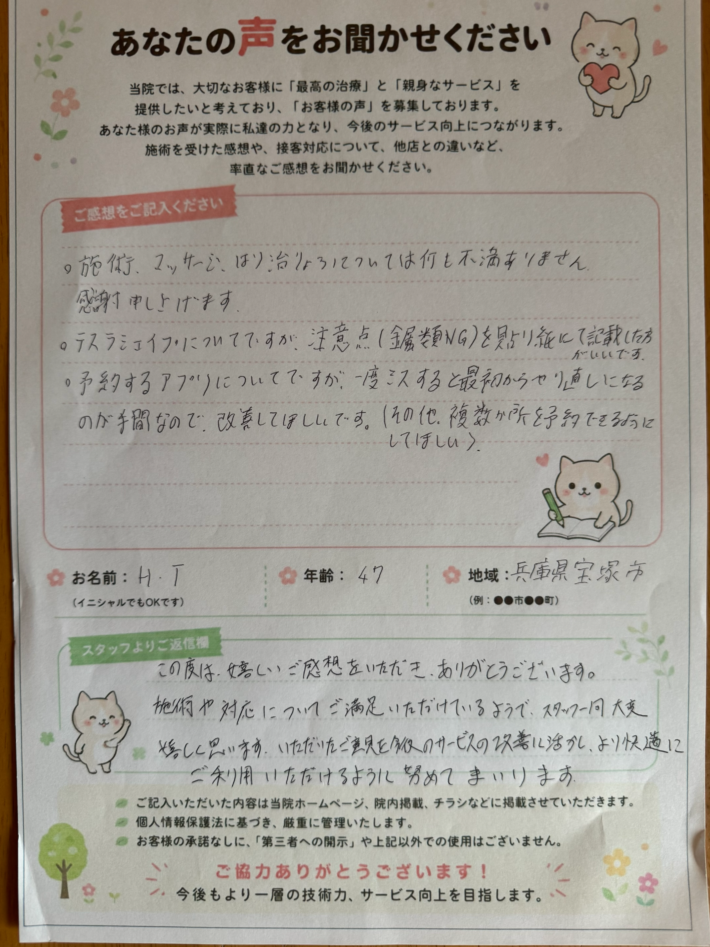 あなたの声をお聞かせください
当院では、大切なお客様に「最高の治療」と「親身なサービス」を
提供したいと考えており、「お客様の声」を募集しております。
あなた様のお声が実際に私達の力となり、今後のサービス向上につながります。
施術を受けた感想や、接客対応について、他店との違いなど、
率直なご感想をお聞かせください。
ご感想をご記入ください
○施術、マッサージ、はり治りょうについては何も不満ありません。
感謝申し上げます。
○テスラシェイプについてですが、注意点(金属類NG)を貼り紙にて記載した方
がいいです。
○予約するアプリについてですが、一度ミスすると最初からやり直しになる
のが手間なので、改善してほしいです。(その他、複数か所を予約できるように
してほしい)。
お名前：H.T
(イニシャルでもOKです)
年齢：47
地域：兵庫県宝塚市
(例：●●市●●町)
スタッフよりご返信欄
この度は、嬉しいご感想をいただき、ありがとうございます。
施術や対応についてご満足いただけているようで、スタッフ一同大変
嬉しく思います。いただいたご意見を今後のサービスの改善に活かし、より快適に
ご利用いただけるように努めてまいります。
ご記入いただいた内容は当院ホームページ、院内掲載、チラシなどに掲載させていただきます。
個人情報保護法に基づき、厳重に管理いたします。
お客様の承諾なしに、「第三者への開示」や上記以外での使用はございません。
ご協力ありがとうございます！
今後もより一層の技術力、サービス向上を目指します。